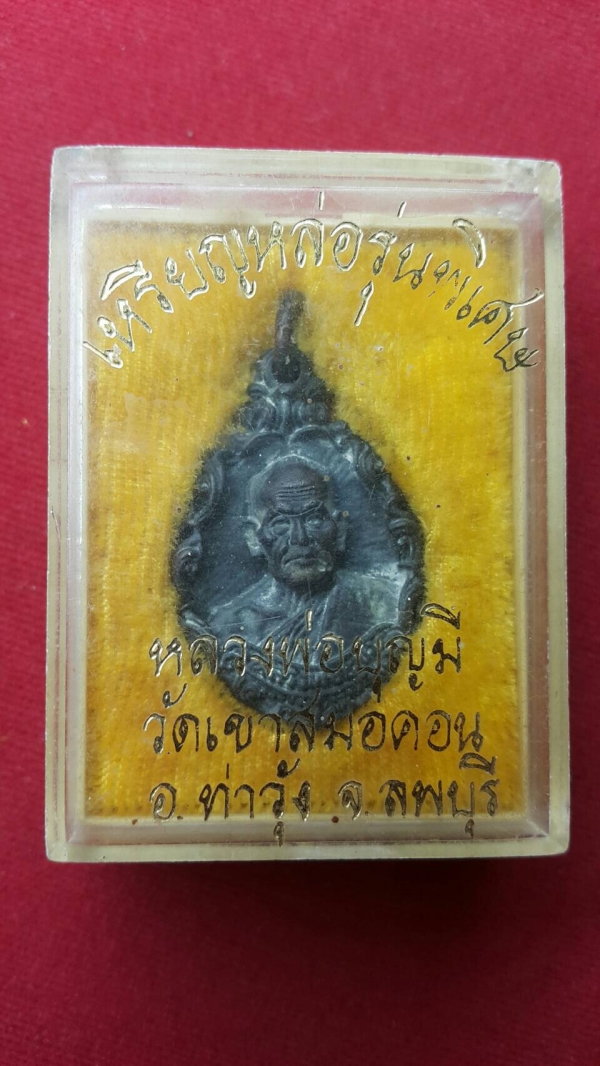 เหรียญหล่อรุ่นพิเศษ
หลวงพ่อบุญมี
วัดเขาสมอคอน
อ.ท่าวุ้ง จ.ลพบุรี